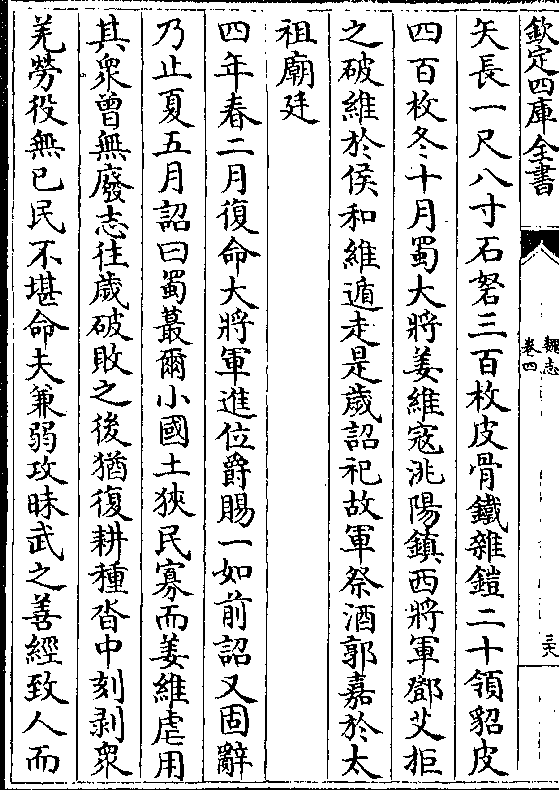 欽定四庫全書
魏志
卷四
三六
矢長一尺八寸石砮三百枚皮骨鐵雜鎧二十領貂皮
四百枚冬十月蜀大將姜維寇洮陽鎮西將軍鄧艾拒
之破維於侯和維遁走是歲詔祀故軍祭酒郭嘉於太
祖廟廷
四年春二月復命大將軍進位爵賜一如前詔又固辭
乃止夏五月詔曰蜀蕞爾小國土狹民寡而姜維虐用
其衆曾無廢志往歲破敗之後猶復耕種沓中刻剥衆
羌勞役無已民不堪命夫兼弱攻昧武之善經致人而